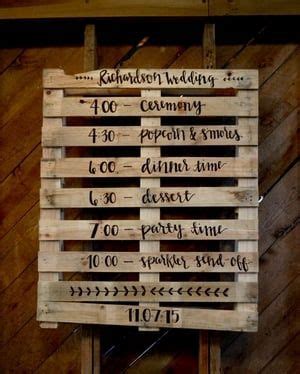 Richardson Wedding
4:00 - ceremony
4:30 - popcorn & s'mores
6:00 - dinner time
6:30 - dessert
7:00 - party time
10:00 - sparkler send off
11.07.15